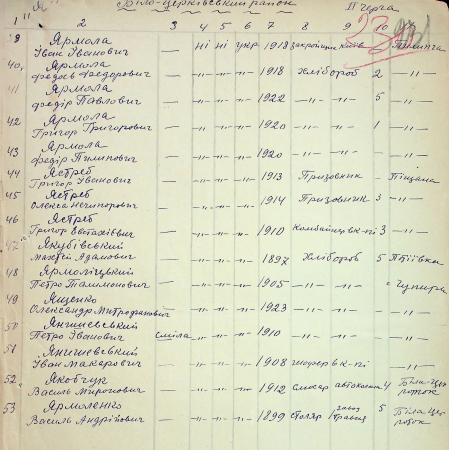 Біло-Церківський район II черга
1 2 3 4 5 6 7 8 9 10
39 Ярмола
Іван Іванович — ні ні укр 1918 Пилипча
40 Ярмола
Федось Федорович — -„- -„- -„- 1918 хлібороб 2 -„-
41 Ярмола
Федір Павлович — -„- -„- -„- 1922 -„- -„- 5 -„-
42 Ярмола
Григор Григорович — -„- -„- -„- 1920 -„- -„- 1 -„-
43 Ярмола
Федір Пилипович — -„- -„- -„- 1920 -„- -„- -„-
44 Ястреб
Григор Іванович — -„- -„- -„- 1913 Призовник - Піщана
45 Ястреб
Олекса Нечипорович — -„- -„- -„- 1914 Призовник 3 -„-
46 Ястреб
Григор Евстахієвич — -„- -„- -„- 1910 Комбайнер к-пі 3 -„-
47 Якубівський
Адамович — -„- -„- -„- 1897 хлібороб 5
48 Ярмоліцький
Петро — -„- -„- -„- 1905 -„- -„- Чупира
49 Ященко
Олександр Митрофанович — -„- -„- -„- 1923 -„- -„- -„-
50 Янишевський
Петро Іванович Сміла -„- -„- -„- 1910 -„- -„- -„-
51 Янишевський
Іван Макарович — -„- -„- -„- 1908 шофер к-пі -„-
52 Яковчук
Василь Миронович — -„- -„- -„- 1912 слюсар 4 Біла-Цер
53 Ярмоленко
Василь Андрійович — -„- -„- -„- 1899 столяр 5 Біла Цер